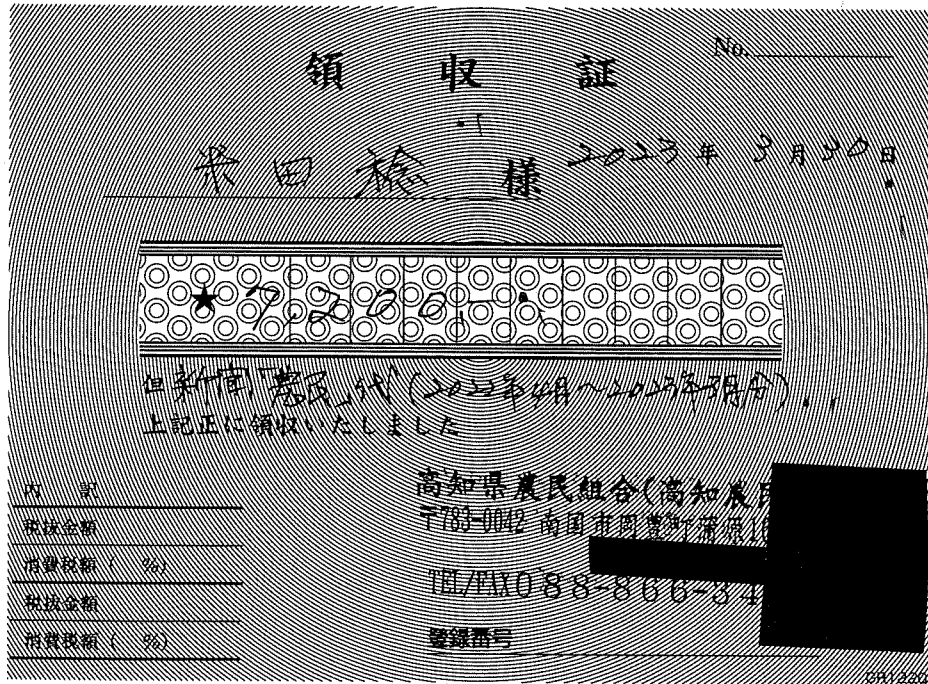 No.
領収証
米田 稔 様
2023年 3月30日
★7,200-
但 新聞「農民」代(2022年4月~2023年3月分)
上記正に領収いたしました
内 訳
税抜金額
消費税額( %)
税抜金額
消費税額( %)
高知県農民組合(高知農民
〒783-0042 南国市岡豊町蒲原16
TEL/FAX088-866-34
登録番号